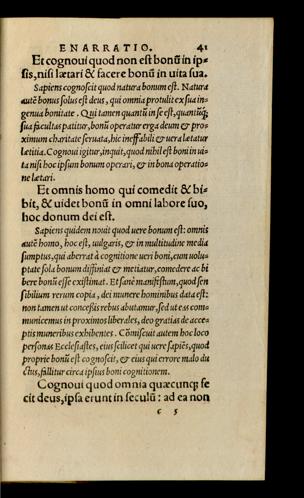 ENARRATIO. 41
Et cognoui quod non est bonũ in ip-
sis, nisi lætari & facere bonũ in uita sua.
Sapiens cognoscit quod natura bonum est. Natura
autẽ bonus solus est deus, qui omnia protulit ex sua in-
genua bonitate. Qui tamen quantũ in se est, quantũq;
sua facultas patitur, bonũ operatur erga deum & pro-
ximum charitate seruata, hic ineffabili & uera lætatur
lætitia. Cognoui igitur, inquit, quod nihil est boni in ui-
ta nisi hoc ipsum bonum operari, & in bona operatio-
ne lætari.
Et omnis homo qui comedit & bi-
bit, & uidet bonũ in omni labore suo,
hoc donum dei est.
Sapiens quidem nouit quod uere bonum est: omnis
autẽ homo, hoc est, uulgaris, & in multitudine media
sumptus, qui aberrat à cognitione ueri boni, cum uolu-
ptate sola bonum diffiniat & metiatur, comedere ac bi
bere bonũ esse existimat. Et sanè manifestum, quod sen
sibilium rerum copia, dei munere hominibus data est:
non tamen ut concessis rebus abutamur, sed ut eas com-
municemus in proximos liberales, deo gratias de acce-
ptis muneribus exhibentes. Cõmiscuit autem hoc loco
personas Ecclesiastes, eius scilicet qui uere sapiẽs, quod
proprie bonũ est cognoscit, & eius qui errore malo du
ctus, fallitur circa ipsius boni cognitionem.
Cognoui quod omnia quæcunq; fe
cit deus, ipsa erunt in seculũ: ad ea non
c 5